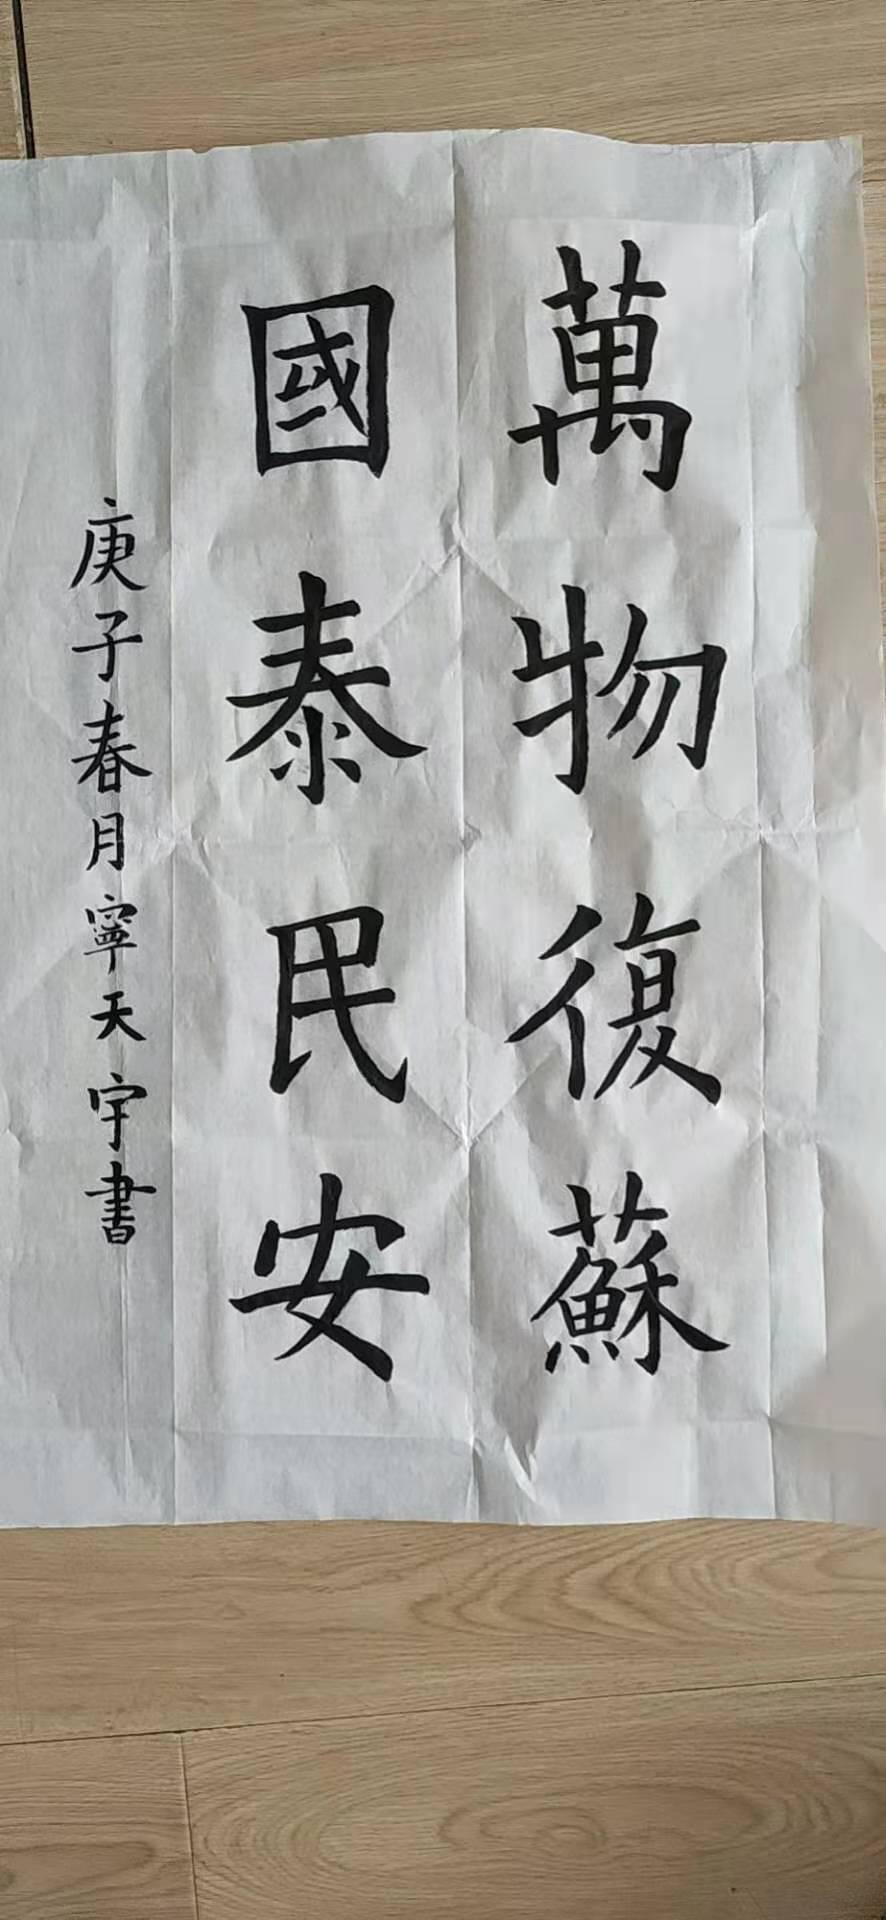 萬物復蘇
國泰民安
庚子春月寧天宇書